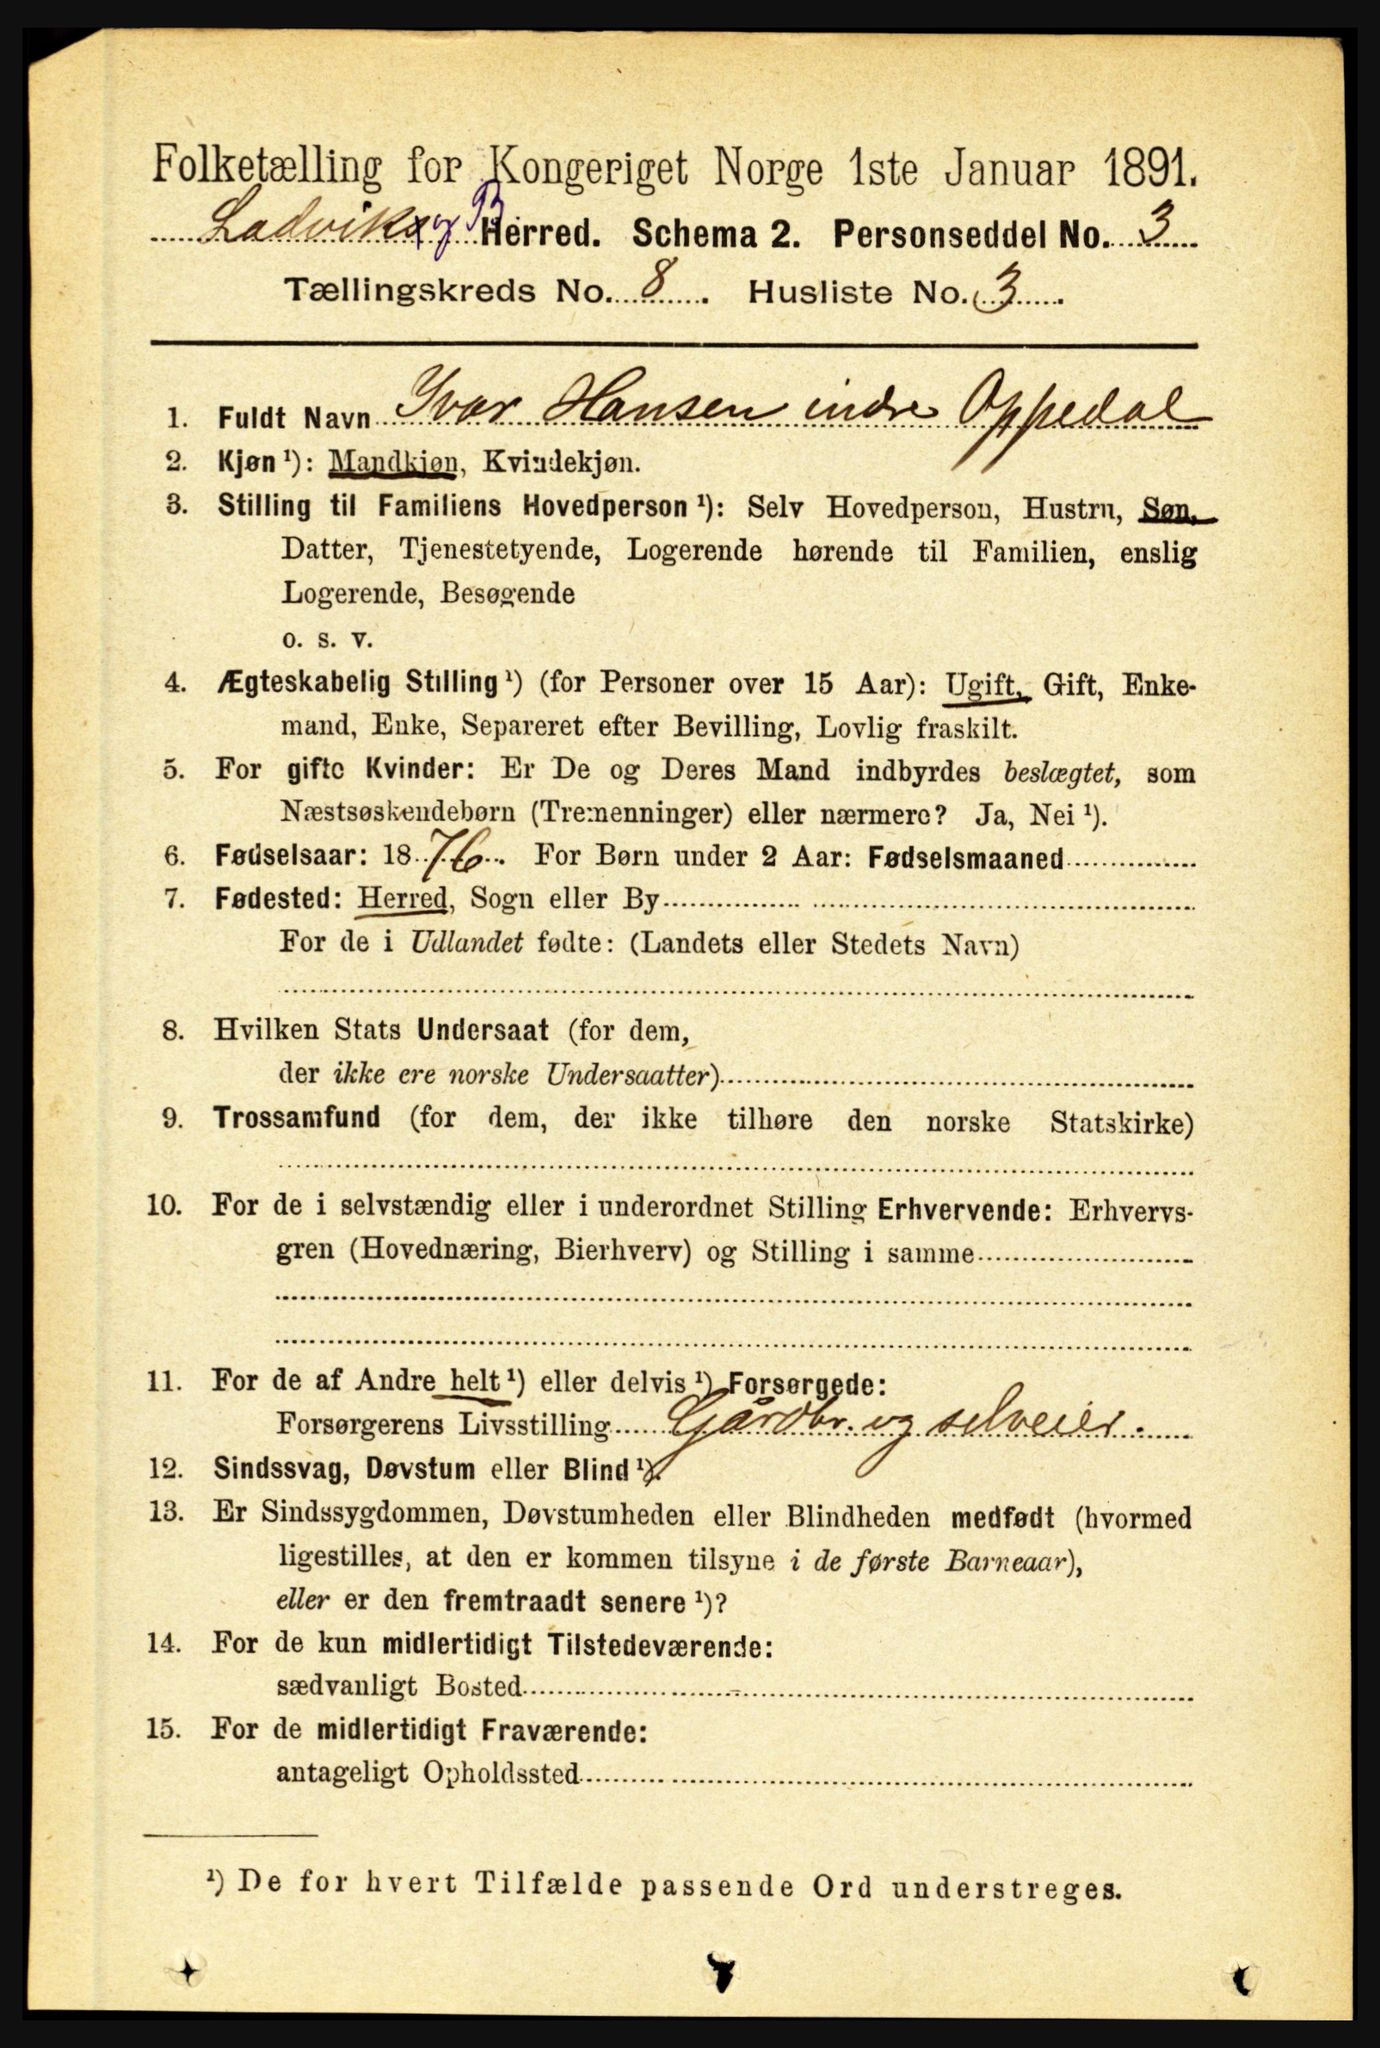 Folketælling for Kongeriget Norge 1ste Januar 1891.
Ladviks og B. Herred. Schema 2. Personseddel No. 3
Tællingskreds No. 8. Husliste No. 3.
1. Fuldt Navn Ivar Hansen indre Oppedal
2. Kjøn ¹): Mandkjøn, Kvindekjøn.
3. Stilling til Familiens Hovedperson ¹): Selv Hovedperson, Hustru, Søn,
Datter, Tjenestetyende, Logerende hørende til Familien, enslig
Logerende, Besøgende
o. s. v.
4. Ægteskabelig Stilling ¹) (for Personer over 15 Aar): Ugift, Gift, Enke-
mand, Enke, Separeret efter Bevilling, Lovlig fraskilt.
5. For gifte Kvinder: Er De og Deres Mand indbyrdes beslægtet, som
Næstsøskendebørn (Tremenninger) eller nærmere? Ja, Nei ¹).
6. Fødselsaar: 1876. For Børn under 2 Aar: Fødselsmaaned
7. Fødested: Herred, Sogn eller By
For de i Udlandet fødte: (Landets eller Stedets Navn)
8. Hvilken Stats Undersaat (for dem,
der ikke ere norske Undersaatter)
9. Trossamfund (for dem, der ikke tilhøre den norske Statskirke)
10. For de i selvstændig eller i underordnet Stilling Erhvervende: Erhvervs-
gren (Hovednæring, Bierhverv) og Stilling i samme
11. For de af Andre helt ¹) eller delvis ¹) Forsørgede:
Forsørgerens Livsstilling Gårdbr. og selveier.
12. Sindssvag, Døvstum eller Blind ¹).
13. Er Sindssygdommen, Døvstumheden eller Blindheden medfødt (hvormed
ligestilles, at den er kommen tilsyne i de første Barneaar),
eller er den fremtraadt senere ¹)?
14. For de kun midlertidigt Tilstedeværende:
sædvanligt Bosted
15. For de midlertidigt Fraværende:
antageligt Opholdssted
¹) De for hvert Tilfælde passende Ord understreges.